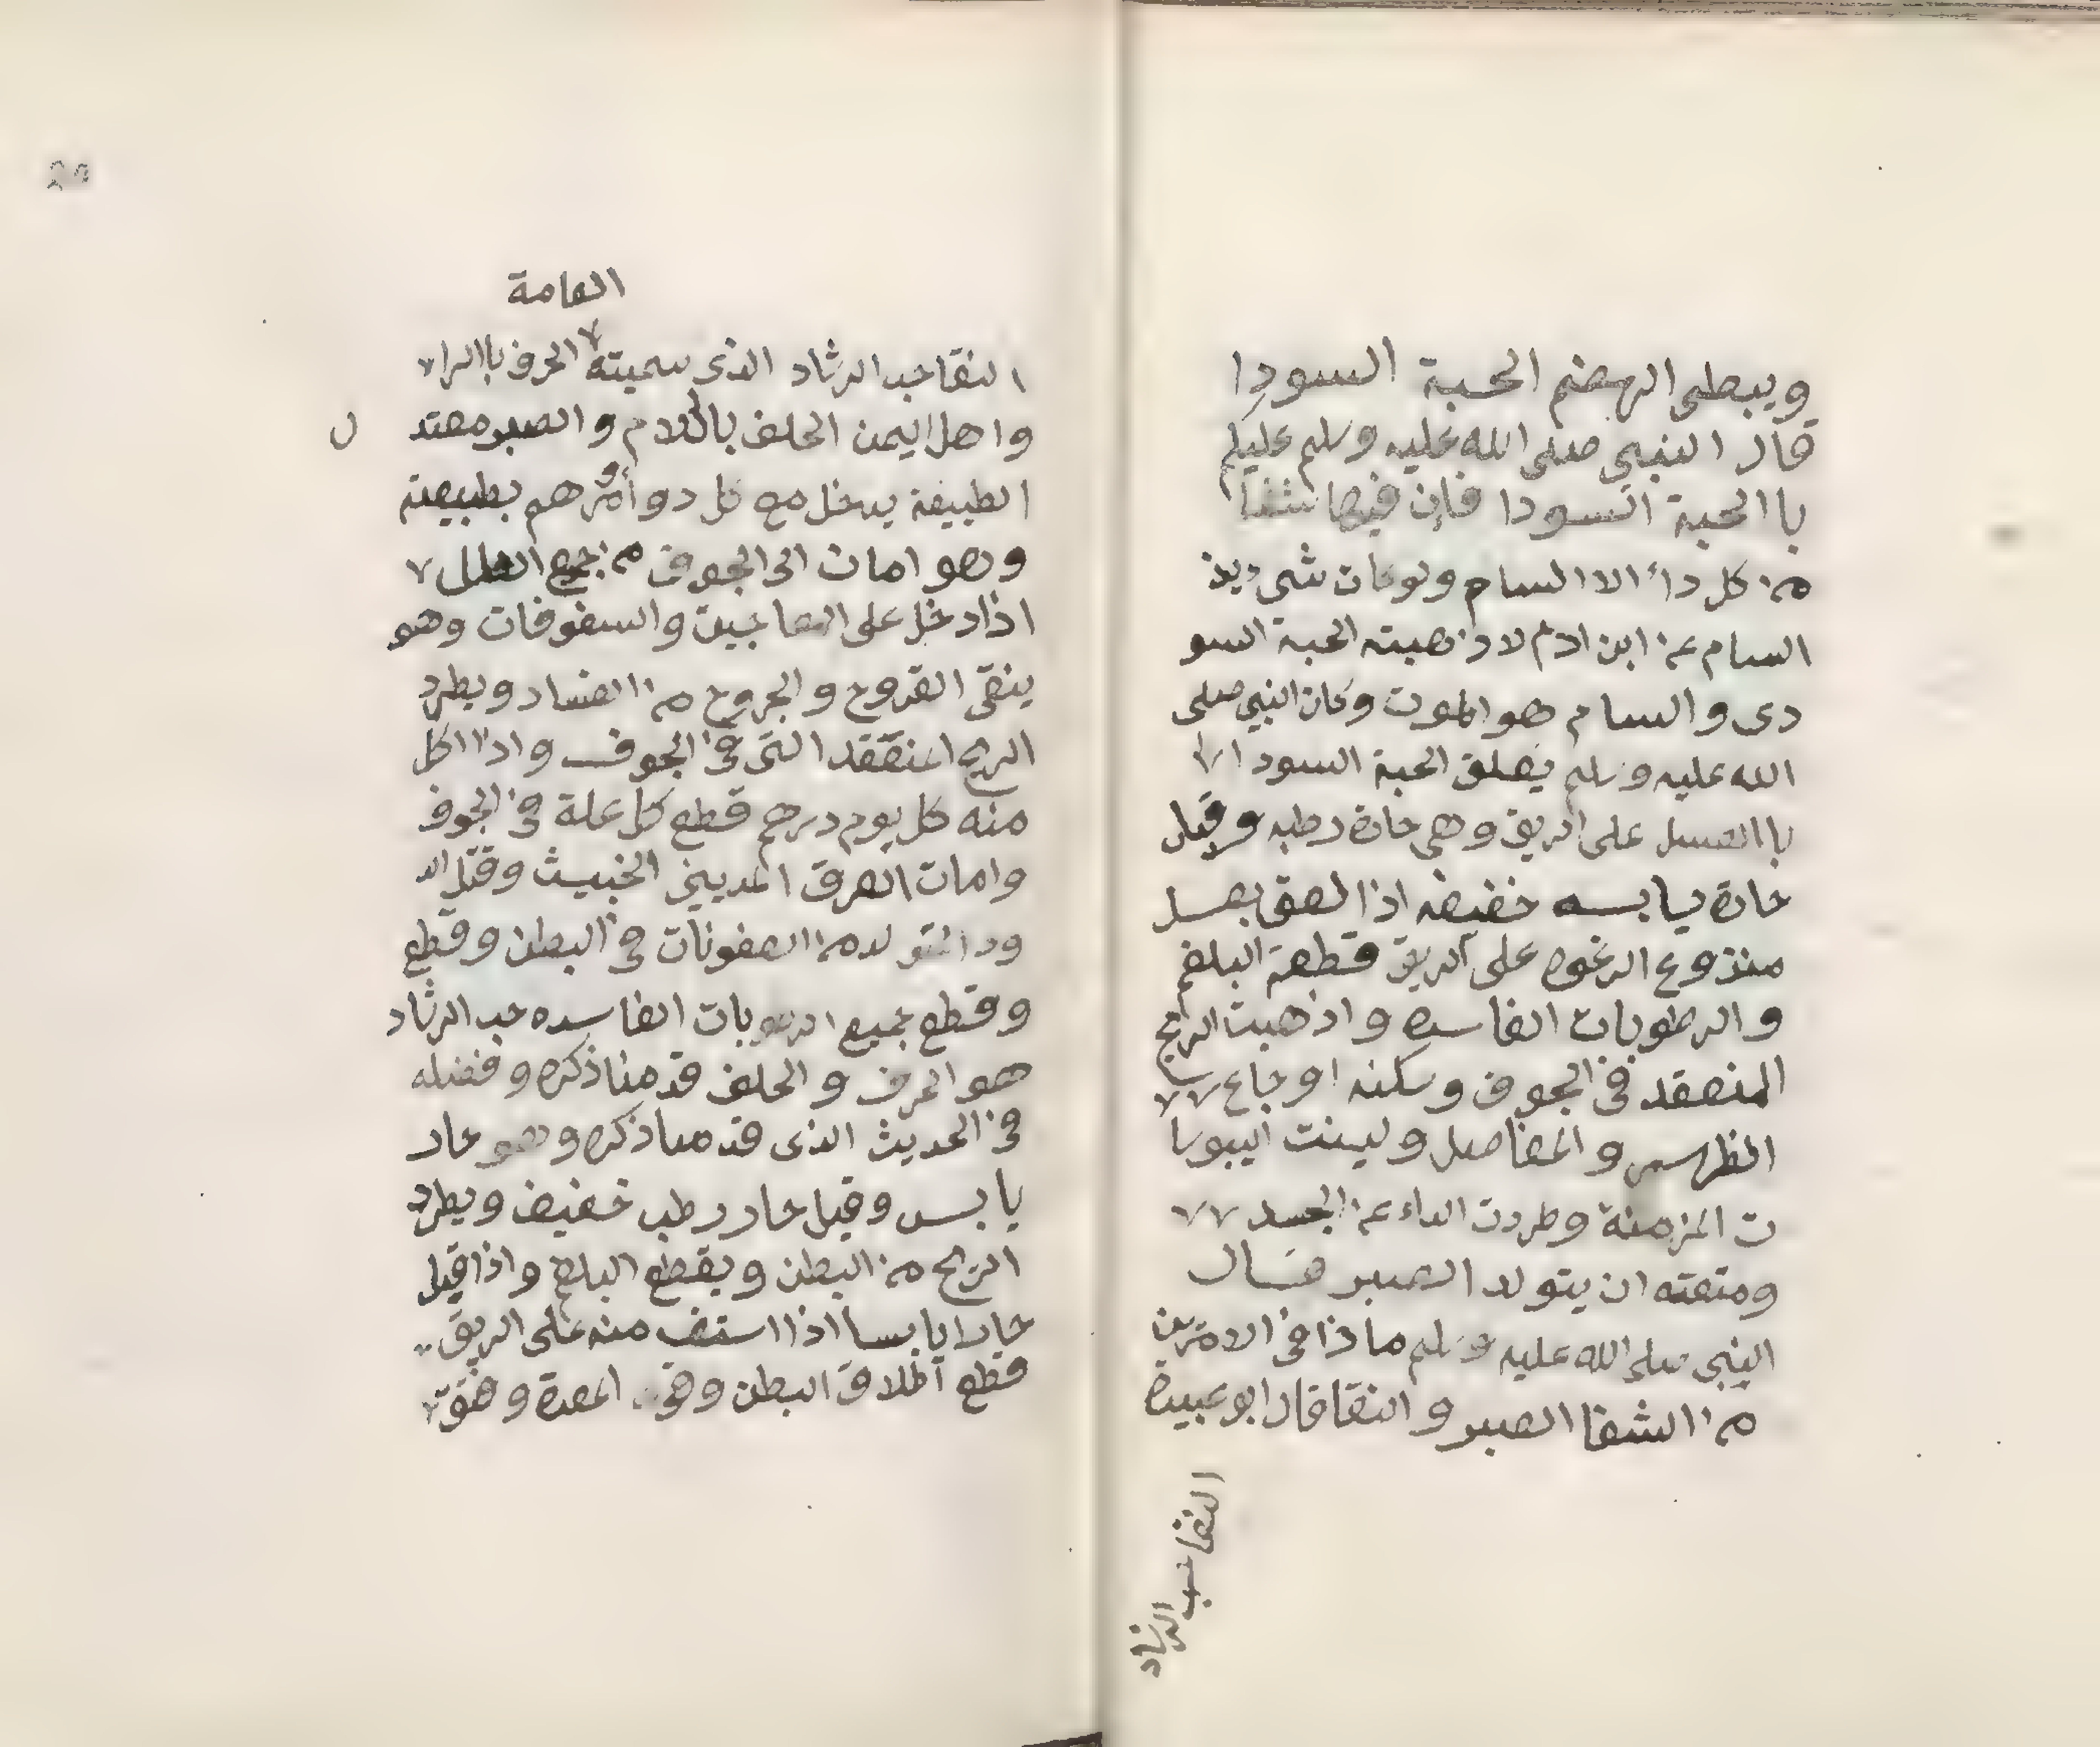 ويبطى الهضم الحبة السودا
قال النبي صلى الله عليه وسلم عليكم
باالحبة السودا فإن فيها شفا
من كل داء الا السام ولو كان شي يذ
السام عن ابن ادم لاذهبته الحبة السو
دى والسام هو الموت وكان النبي صلى
الله عليه وسلم يلعق الحبة السودا
باالعسل على الريق وهي حارة رطبه وقيل
حارة يابسه خفيفه اذا لعق بعسل
منزوع الرغوه على الريق قطعة البلغم
والرطوبات الفاسده واذهبت الريح
المنعقد في الجوف وسكنه اوجاع
الظهر والمفاصل ولينت اليبوسا
ت المزمنة وطردت الداء عن الجسد
ومنعته ان يتولد الصبر قال
النبي صلى الله عليه وسلم ماذا في الامرين
من الشفا الصبر والثقا قال ابو عبيدة
الثقا حب الرشاد
العامة
الثقا حب الرشاد الذي سميته الحرف باالرا
واهل اليمن الحلف بالام والصبر معتد
ل
الطبيعة يدخل مع كل دوا هم بطبيعته
وهو امان الى الجوف من جميع العلل
اذا دخل على المعاجين والسفوفات وهو
ينقي القروح والجروح من الفساد ويطرد
الريح المنعقد التي في الجوف واذا اكل
منه كل يوم درهم قطع كل علة في الجوف
وامات العرق المديني الخبيث وقتل الد
ود المتولد من العفونات في البطن وقطع
وقطع جميع الرطوبات الفاسده حب الرشاد
هو الحرف والحلف قد منا ذكره وفضله
في الحديث الذي قد منا ذكره وهو حار
يابس وقيل حار رطب خفيف ويطرد
الريح من البطن ويقطع البلغ واذا قيل
حارا يابسا اذا استف منه على الريق
قطع اطلاق البطن وقوى المعدة وهو